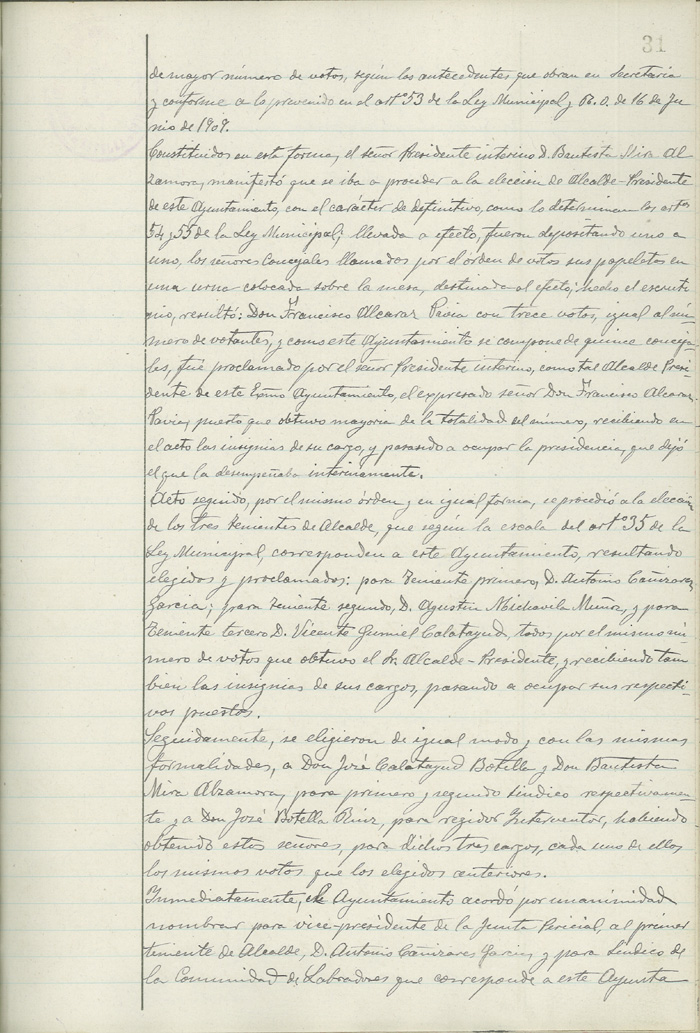 31
de mayor número de votos, según los antecedentes que obran en Secretaría
y conforme a lo prevenido en el artº 53 de la Ley Municipal y R. O. de 16 de Ju
nio de 1909.
Constituidos en esta forma, el señor Presidente interino D. Bautista Mira Al
zamora, manifestó que se iba a proceder a la elección de Alcalde-Presidente
de este Ayuntamiento, con el carácter de definitivo, como lo determinan los artos
54 y 55 de la Ley Municipal; llevada a efecto, fueron depositando uno a
uno, los señores Concejales llamados por el órden de votos sus papeletas en
una urna colocada sobre la mesa, destinada al efecto; hecho el escruti
nio, resultó: Don Francisco Alcaraz Pavia con trece votos, igual al nú-
mero de votantes, y como este Ayuntamiento se compone de quince conceja-
les, fué proclamado por el señor Presidente interino, como tal Alcalde Presi-
dente de este Exmo Ayuntamiento, el expresado señor Don Francisco Alcaraz
Pavia, puesto que obtuvo mayoria de la totalidad del número, recibiendo en
el acto las insignias de su cargo, y pasando a ocupar la presidencia, que dejó
el que la desempeñaba interinamente.
Acto seguido, por el mismo órden y en igual forma, se procedió a la elección
de los tres tenientes de Alcalde, que según la escala del artº 35 de la
Ley Municipal, corresponden a este Ayuntamiento, resultando
elegidos y proclamados: para Teniente primero, D. Antonio Cañizares
Garcia; para teniente segundo, D. Agustin Michavila Muñoz, y para
Teniente tercero D. Vicente Gumiel Calatayud, todos por el mismo nú-
mero de votos que obtuvo el Sr. Alcalde-Presidente, y recibiendo tam
bien las insignias de sus cargos, pasando a ocupar sus respecti-
vos puestos.
Seguidamente, se eligieron de igual modo y con las mismas
formalidades, a Don José Calatayud Botella y Don Bautista
Mira Alzamora, para primero y segundo síndico respectivamen-
te y a Don José Botella Ruiz, para regidor Interventor, habiendo
obtenido estos señores, para dichos tres cargos, cada uno de ellos
los mismos votos que los elegidos anteriores.
Inmediatamente, el Ayuntamiento acordó por unanimidad
nombrar para vice-presidente de la Junta Pericial, al primer
teniente de Alcalde, D. Antonio Cañizares Garcia, y para Síndico de
la Comunidad de Labradores que corresponde a este Ayunta